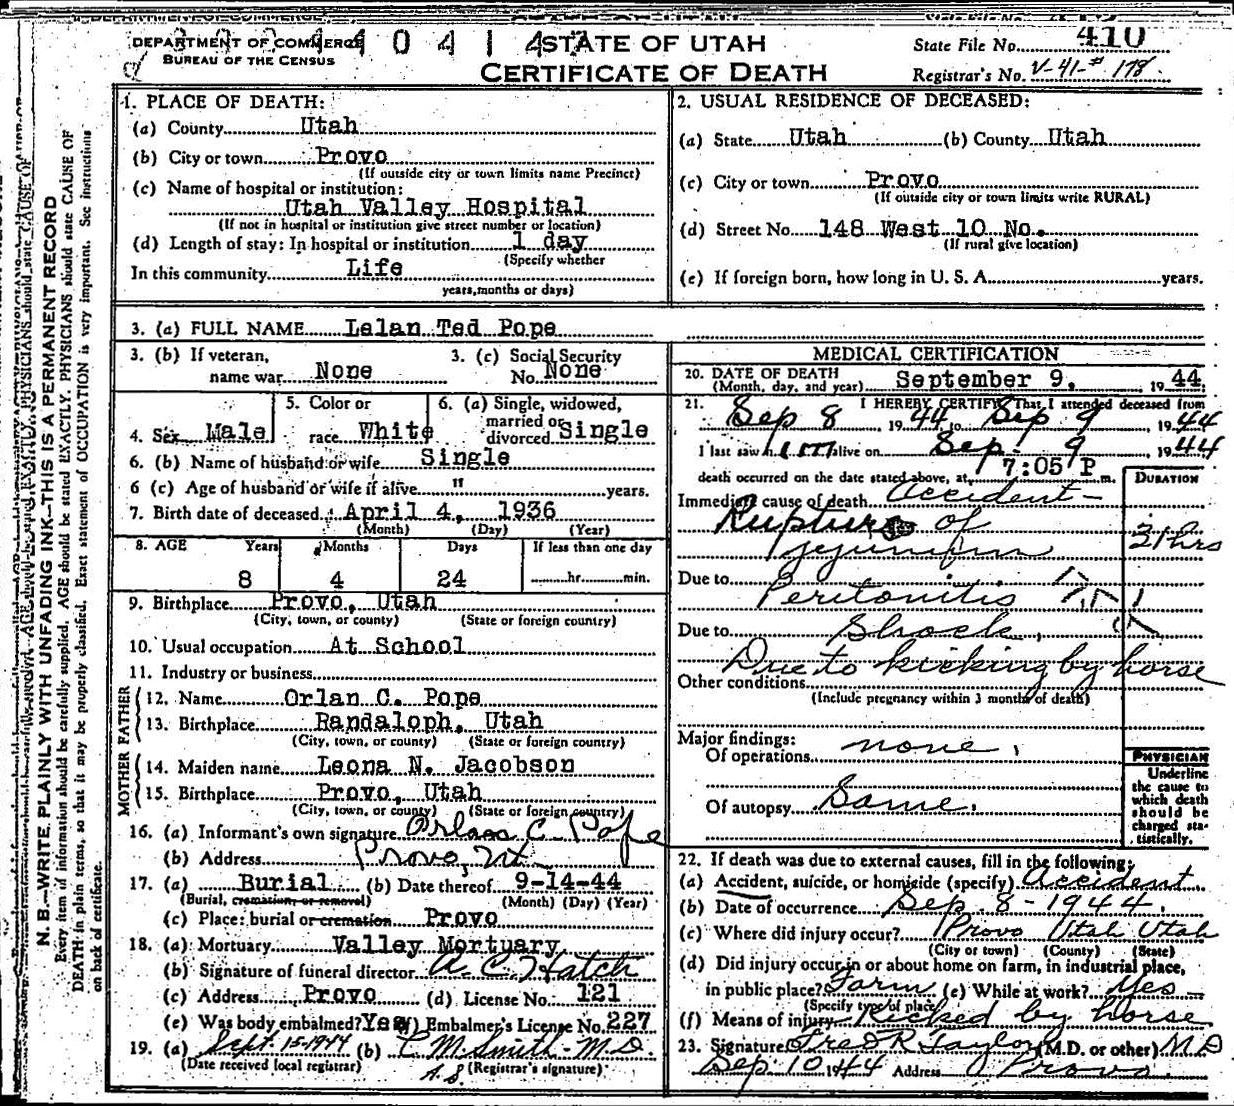 DEPARTMENT OF COMMERCE
BUREAU OF THE CENSUS
4 0 4 1 4
STATE OF UTAH
CERTIFICATE OF DEATH
State File No. 410
Registrar's No. V-41-# 178
1. PLACE OF DEATH:
(a) County Utah
(b) City or town Provo
(If outside city or town limits name Precinct)
(c) Name of hospital or institution:
Utah Valley Hospital
(If not in hospital or institution give street number or location)
(d) Length of stay: In hospital or institution 1 day
(Specify whether
In this community Life
years, months or days)
2. USUAL RESIDENCE OF DECEASED:
(a) State Utah (b) County Utah
(c) City or town Provo
(If outside city or town limits write RURAL)
(d) Street No. 148 West 10 No.
(If rural give location)
(e) If foreign born, how long in U. S. A. years.
3. (a) FULL NAME Lelan Ted Pope
3. (b) If veteran, name war None
3. (c) Social Security No. None
4. Sex Male
5. Color or race White
6. (a) Single, widowed, married or divorced Single
6. (b) Name of husband or wife Single
6 (c) Age of husband or wife if alive " years.
7. Birth date of deceased April 4, 1936
(Month) (Day) (Year)
8. AGE Years Months Days If less than one day
8 4 24 hr. min.
9. Birthplace Provo, Utah
(City, town, or county) (State or foreign country)
10. Usual occupation At School
11. Industry or business
FATHER
12. Name Orlan C. Pope
13. Birthplace Randaloph, Utah
(City, town, or county) (State or foreign country)
MOTHER
14. Maiden name Leona N. Jacobson
15. Birthplace Provo, Utah
(City, town, or county) (State or foreign country)
16. (a) Informant's own signature Orlan C. Pope
(b) Address Provo, Ut
17. (a) Burial (b) Date thereof 9-14-44
(Burial, cremation, or removal) (Month) (Day) (Year)
(c) Place: burial or cremation Provo
18. (a) Mortuary Valley Mortuary
(b) Signature of funeral director A. C. Hatch
(c) Address Provo (d) License No. 121
(e) Was body embalmed? Yes (f) Embalmer's License No. 227
19. (a) Sept. 15-1944 (b) C. M. Smith - M.D.
(Date received local registrar) (Registrar's signature)
MEDICAL CERTIFICATION
20. DATE OF DEATH
(Month, day, and year) September 9, 1944
21. I HEREBY CERTIFY That I attended deceased from
Sep 8 1944 to Sep 9 1944
I last saw h im alive on Sep 9 1944
death occurred on the date stated above, at 7:05 P m.
DURATION
Immediate cause of death Accident-
Rupture of
jejunum
31 hrs
Due to Peritonitis
Due to Shock,
Due to kicking by horse
Other conditions
(Include pregnancy within 3 months of death)
Major findings:
Of operations none.
Of autopsy Same.
PHYSICIAN
Underline
the cause to
which death
should be
charged sta-
tistically.
22. If death was due to external causes, fill in the following:
(a) Accident, suicide, or homicide (specify) Accident
(b) Date of occurrence Sep 8-1944.
(c) Where did injury occur? Provo Utah Utah
(City or town) (County) (State)
(d) Did injury occur in or about home on farm, in industrial place,
in public place? Farm (e) While at work? Yes-
(Specify type of place)
(f) Means of injury Kicked by horse
23. Signature Fred R Taylor (M.D. or other) M D
Sep 10 1944 Address Provo.
N. B.—WRITE PLAINLY WITH UNFADING INK—THIS IS A PERMANENT RECORD
Every item of information should be carefully supplied. AGE should be stated EXACTLY. PHYSICIANS should state CAUSE OF
DEATH in plain terms, so that it may be properly classified. Exact statement of OCCUPATION is very important. See instructions
on back of certificate.